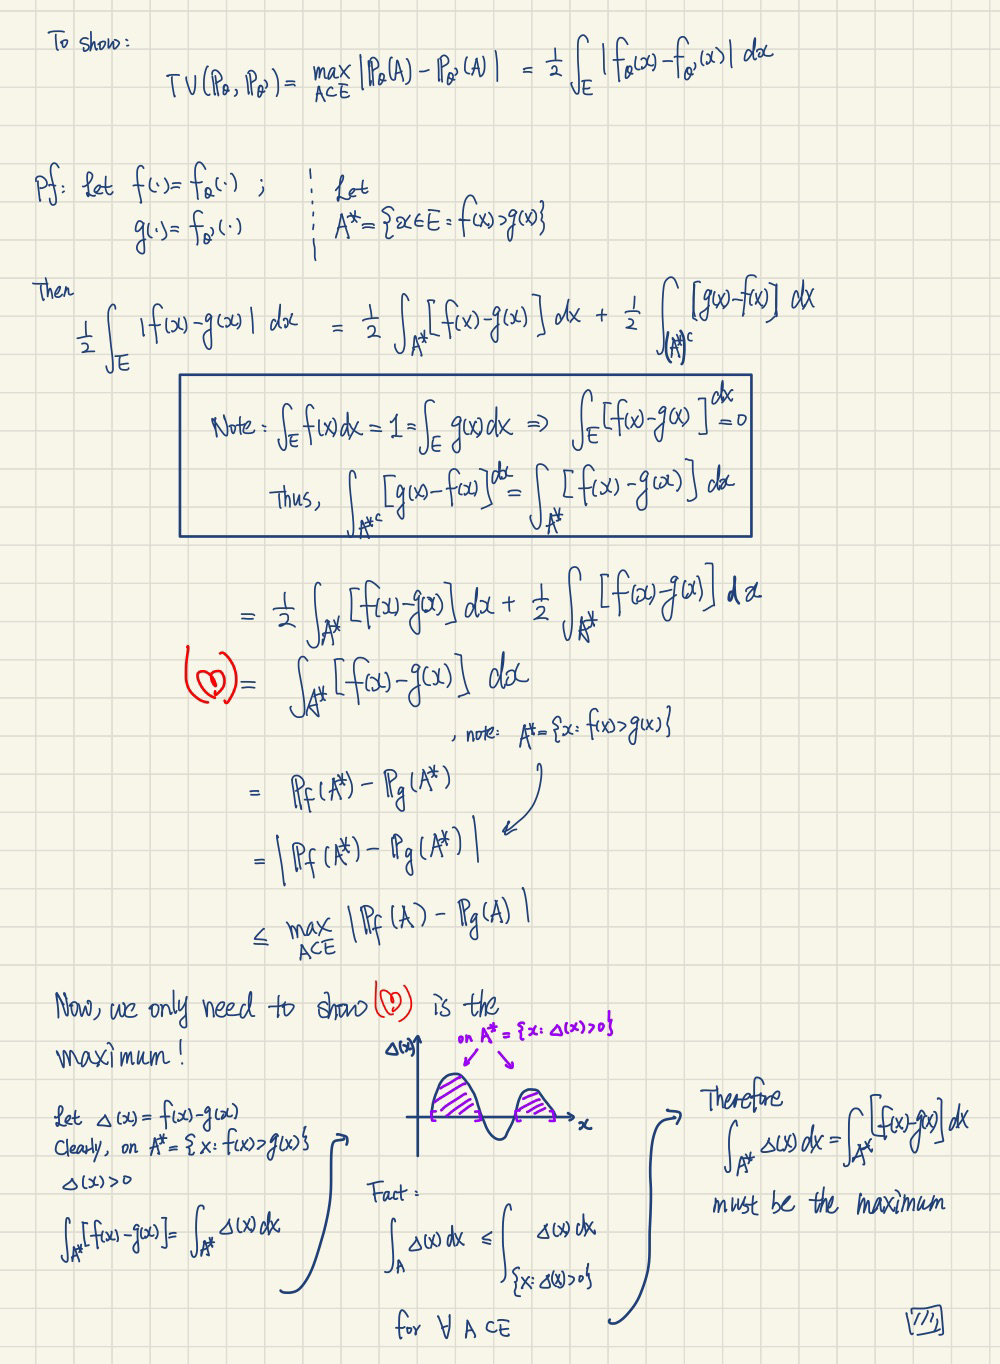 To show:
TV(ℙ_θ, ℙ_θ') = max_{A⊂E} |ℙ_θ(A) − ℙ_θ'(A)| = 1/2 ∫_E |f_θ(x) − f_θ'(x)| dx
Pf: Let f(·) = f_θ(·) ;
g(·) = f_θ'(·)
Let
A* = {x∈E : f(x) > g(x)}
Then
1/2 ∫_E |f(x) − g(x)| dx = 1/2 ∫_{A*} [f(x) − g(x)] dx + 1/2 ∫_{(A*)^c} [g(x) − f(x)] dx
Note: ∫_E f(x) dx = 1 = ∫_E g(x) dx ⇒ ∫_E [f(x) − g(x)] dx = 0
Thus, ∫_{A*^c} [g(x) − f(x)] dx = ∫_{A*} [f(x) − g(x)] dx
= 1/2 ∫_{A*} [f(x) − g(x)] dx + 1/2 ∫_{A*} [f(x) − g(x)] dx
(♡) = ∫_{A*} [f(x) − g(x)] dx
, note: A* = {x: f(x) > g(x)}
= ℙ_f(A*) − ℙ_g(A*)
= |ℙ_f(A*) − ℙ_g(A*)|
≤ max_{A⊂E} |ℙ_f(A) − ℙ_g(A)|
Now, we only need to show (♡) is the
maximum!
Let Δ(x) = f(x) − g(x)
Clearly, on A* = {x: f(x) > g(x)}
Δ(x) > 0
∫_{A*} [f(x) − g(x)] = ∫_{A*} Δ(x) dx
on A* = {x: Δ(x) > 0}
Δ(x)
x
Fact:
∫_A Δ(x) dx ≤ ∫_{{x: Δ(x) > 0}} Δ(x) dx
for ∀ A⊂E
Therefore
∫_{A*} Δ(x) dx = ∫_{A*} [f(x) − g(x)] dx
must be the maximum